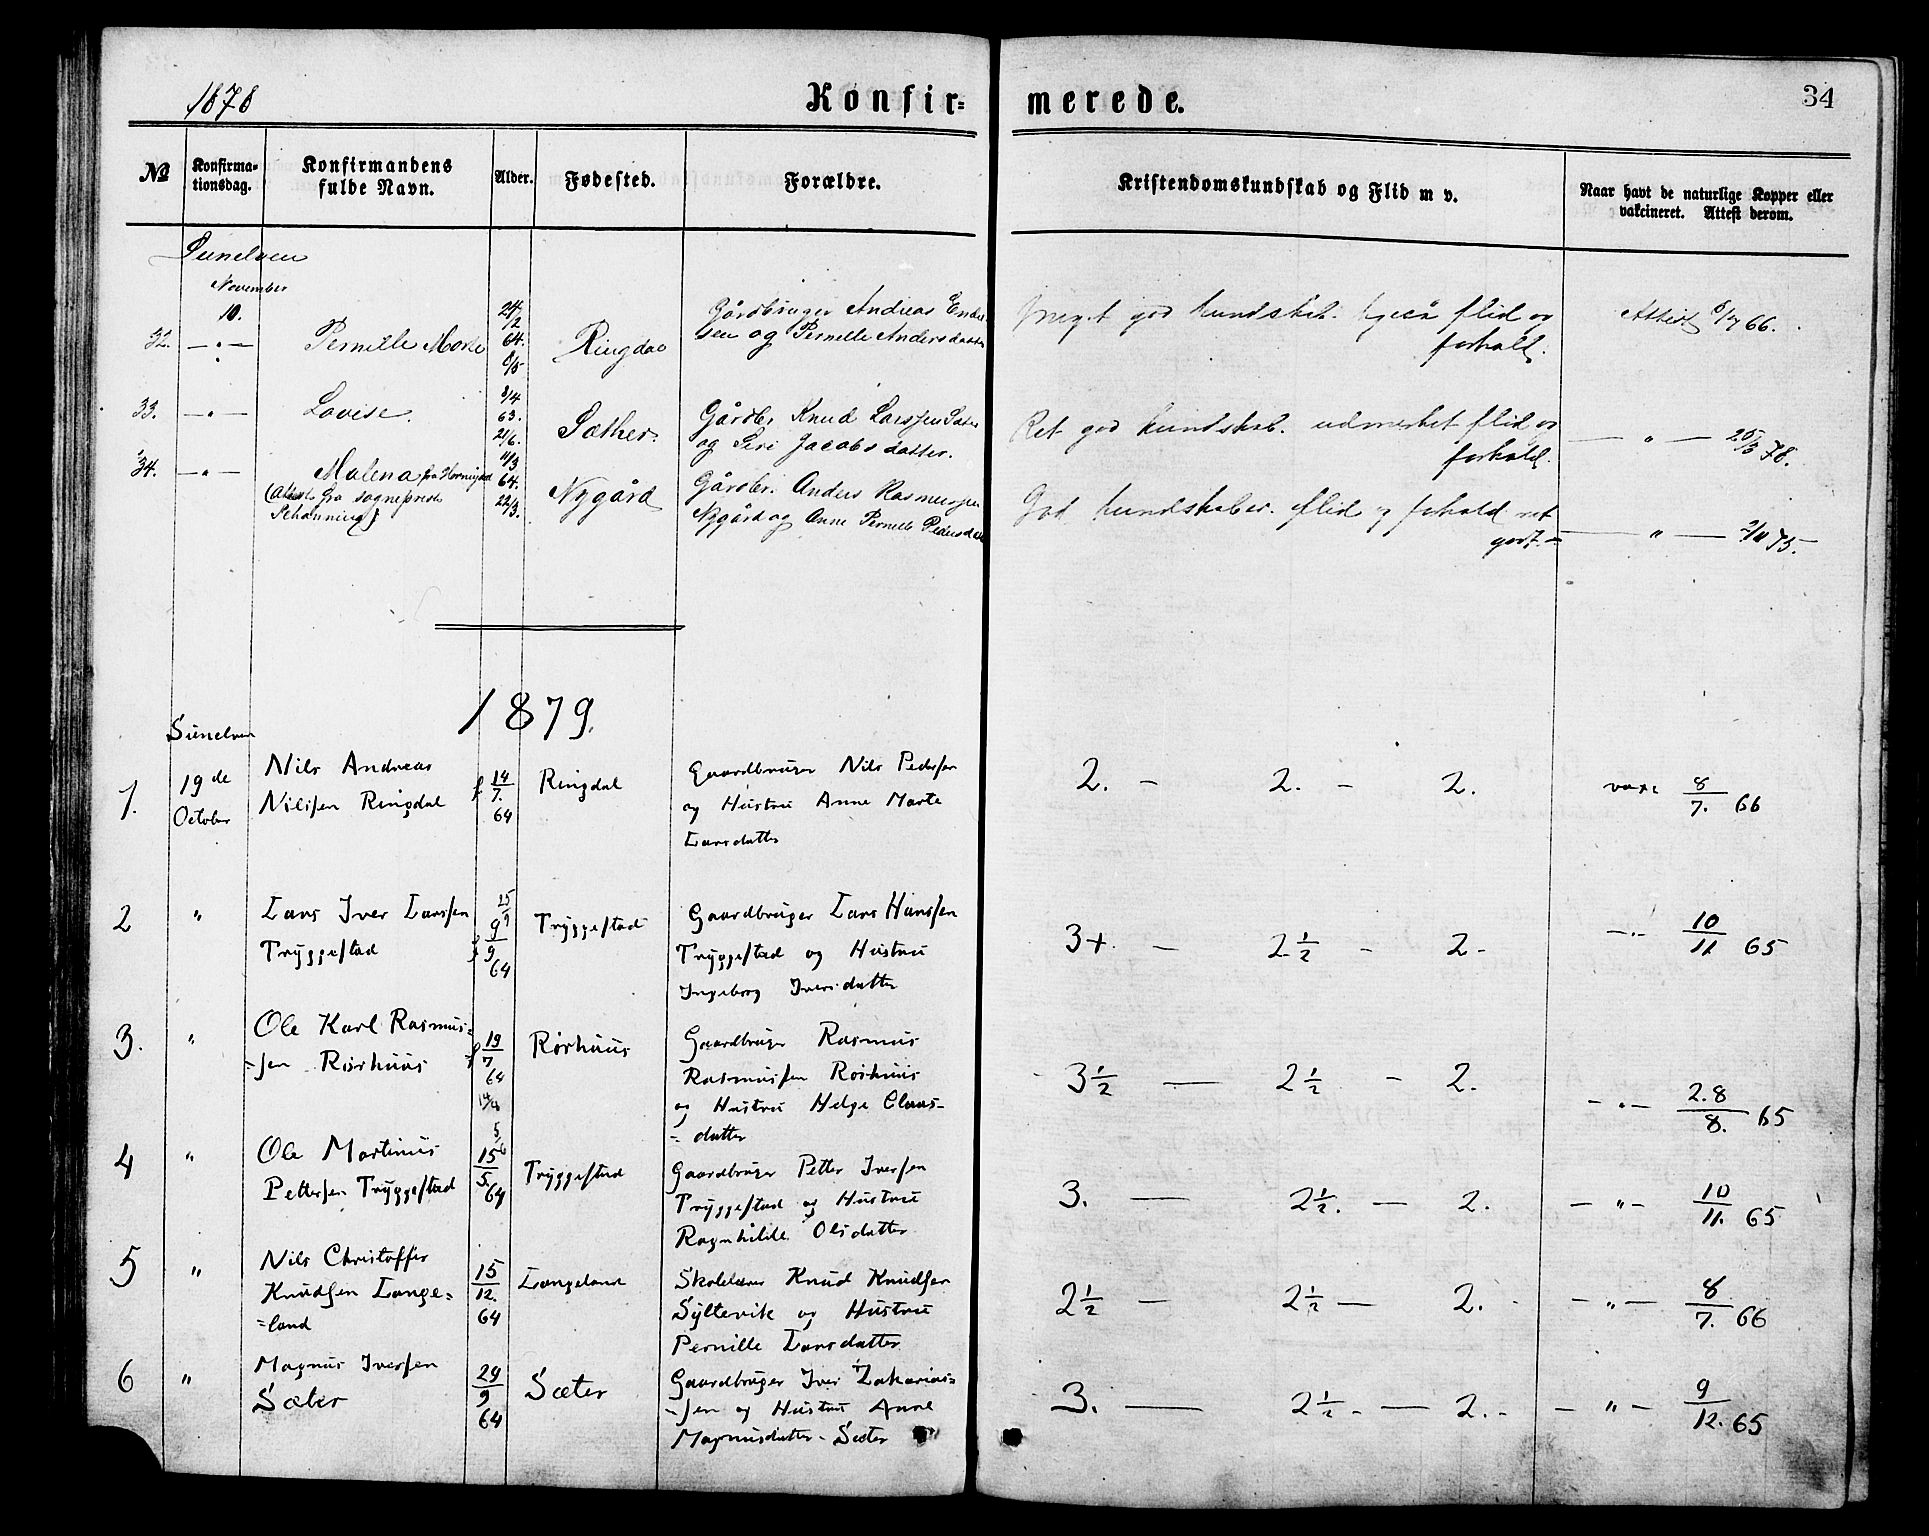 1878 Konfirmerede. 34
№ Konfirmationsdag. Konfirmandens fulde Navn. Alder. Fødested. Forældre. Kristendomskundskab og Flid m v. Naar havt de naturlige Kopper eller vakcineret. Attest derom.
Sunelven
November
10.
32. — " — Pernille Marte 24/2 64. Ringdal Gårdbruger Andreas
sen og Pernille Andersdatter
Meget god kundskab. Ligeså flid og
forhold.
Attest 8/7 66.
33. — " — Lovise. 8/4 63. 21/6. Sæther. Gårdbr. Knud Larssen Sæter
og Siri Jacobsdatter.
Ret god kundskab. udmerket flid og
forhold.
— " — 25/3 78.
34. — " — Malena fra Hornigdal 11/3 64. 22/3. Nygård Gårdbr. Anders Rasmussen
(Attest fra sogneprest Nygård og Anne Pernille Pedersdatter
God kundskaber. flid og forhold ret
godt.
— " — 2/11 75.
1879.
Sunelven
1. 19de October Nils Andreas f 14/7. 64 Ringdal Gaardbruger Nils Pedersen
Nilssen Ringdal og Hustru Anne Marte
Larsdatter
2. - 2. - 2. vaxc 8/7. 66
2 " Lars Iver Larssen f 9/9 64 Tryggestad Gaardbruger Lars Hanssen
Tryggestad Tryggestad og Hustru
Ingeborg Iversdatter
3+. - 2½ - 2 - -"- 10/11 65
3. " Ole Karl Rasmus= f 19/7 64 Rørhuus Gaardbruger Rasmus
=sen Rørhuus Rasmussen Rørhuus
og Hustru Helge Claus-
=datter
3½ — 2½ - 2. -"- 2.8/8. 65
4 " Ole Martinus 15/5. 64 Tryggestad Gaardbruger Petter Iversen
Pettersen Tryggestad Tryggestad og Hustru
Ragnhilde Olsdatter
3. — 2½. — 2. - "- 10/11. 65
5 " Nils Christoffer 15/12. 64 Langeland Skolelærer Knud Knudsen
Knudsen Lange= Syltevik og Hustru
=land Pernille Larsdatter
2½ — 2½ — 2. - — " — 8/7. 66
6 " Magnus Iversen 29/9 64 Sæter Gaardbruger Iver Zakarias=
Sæter =sen og Hustru Anne
Magnusdatter Sæter
3. — 2½ - — 2. - — " — 9/12. 65